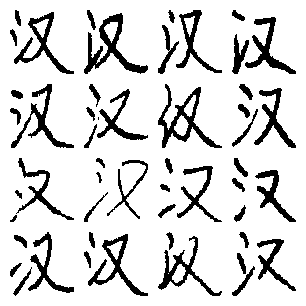 汉汉汉汉
汉汉汉汉
汉汉汉汉
汉汉汉汉